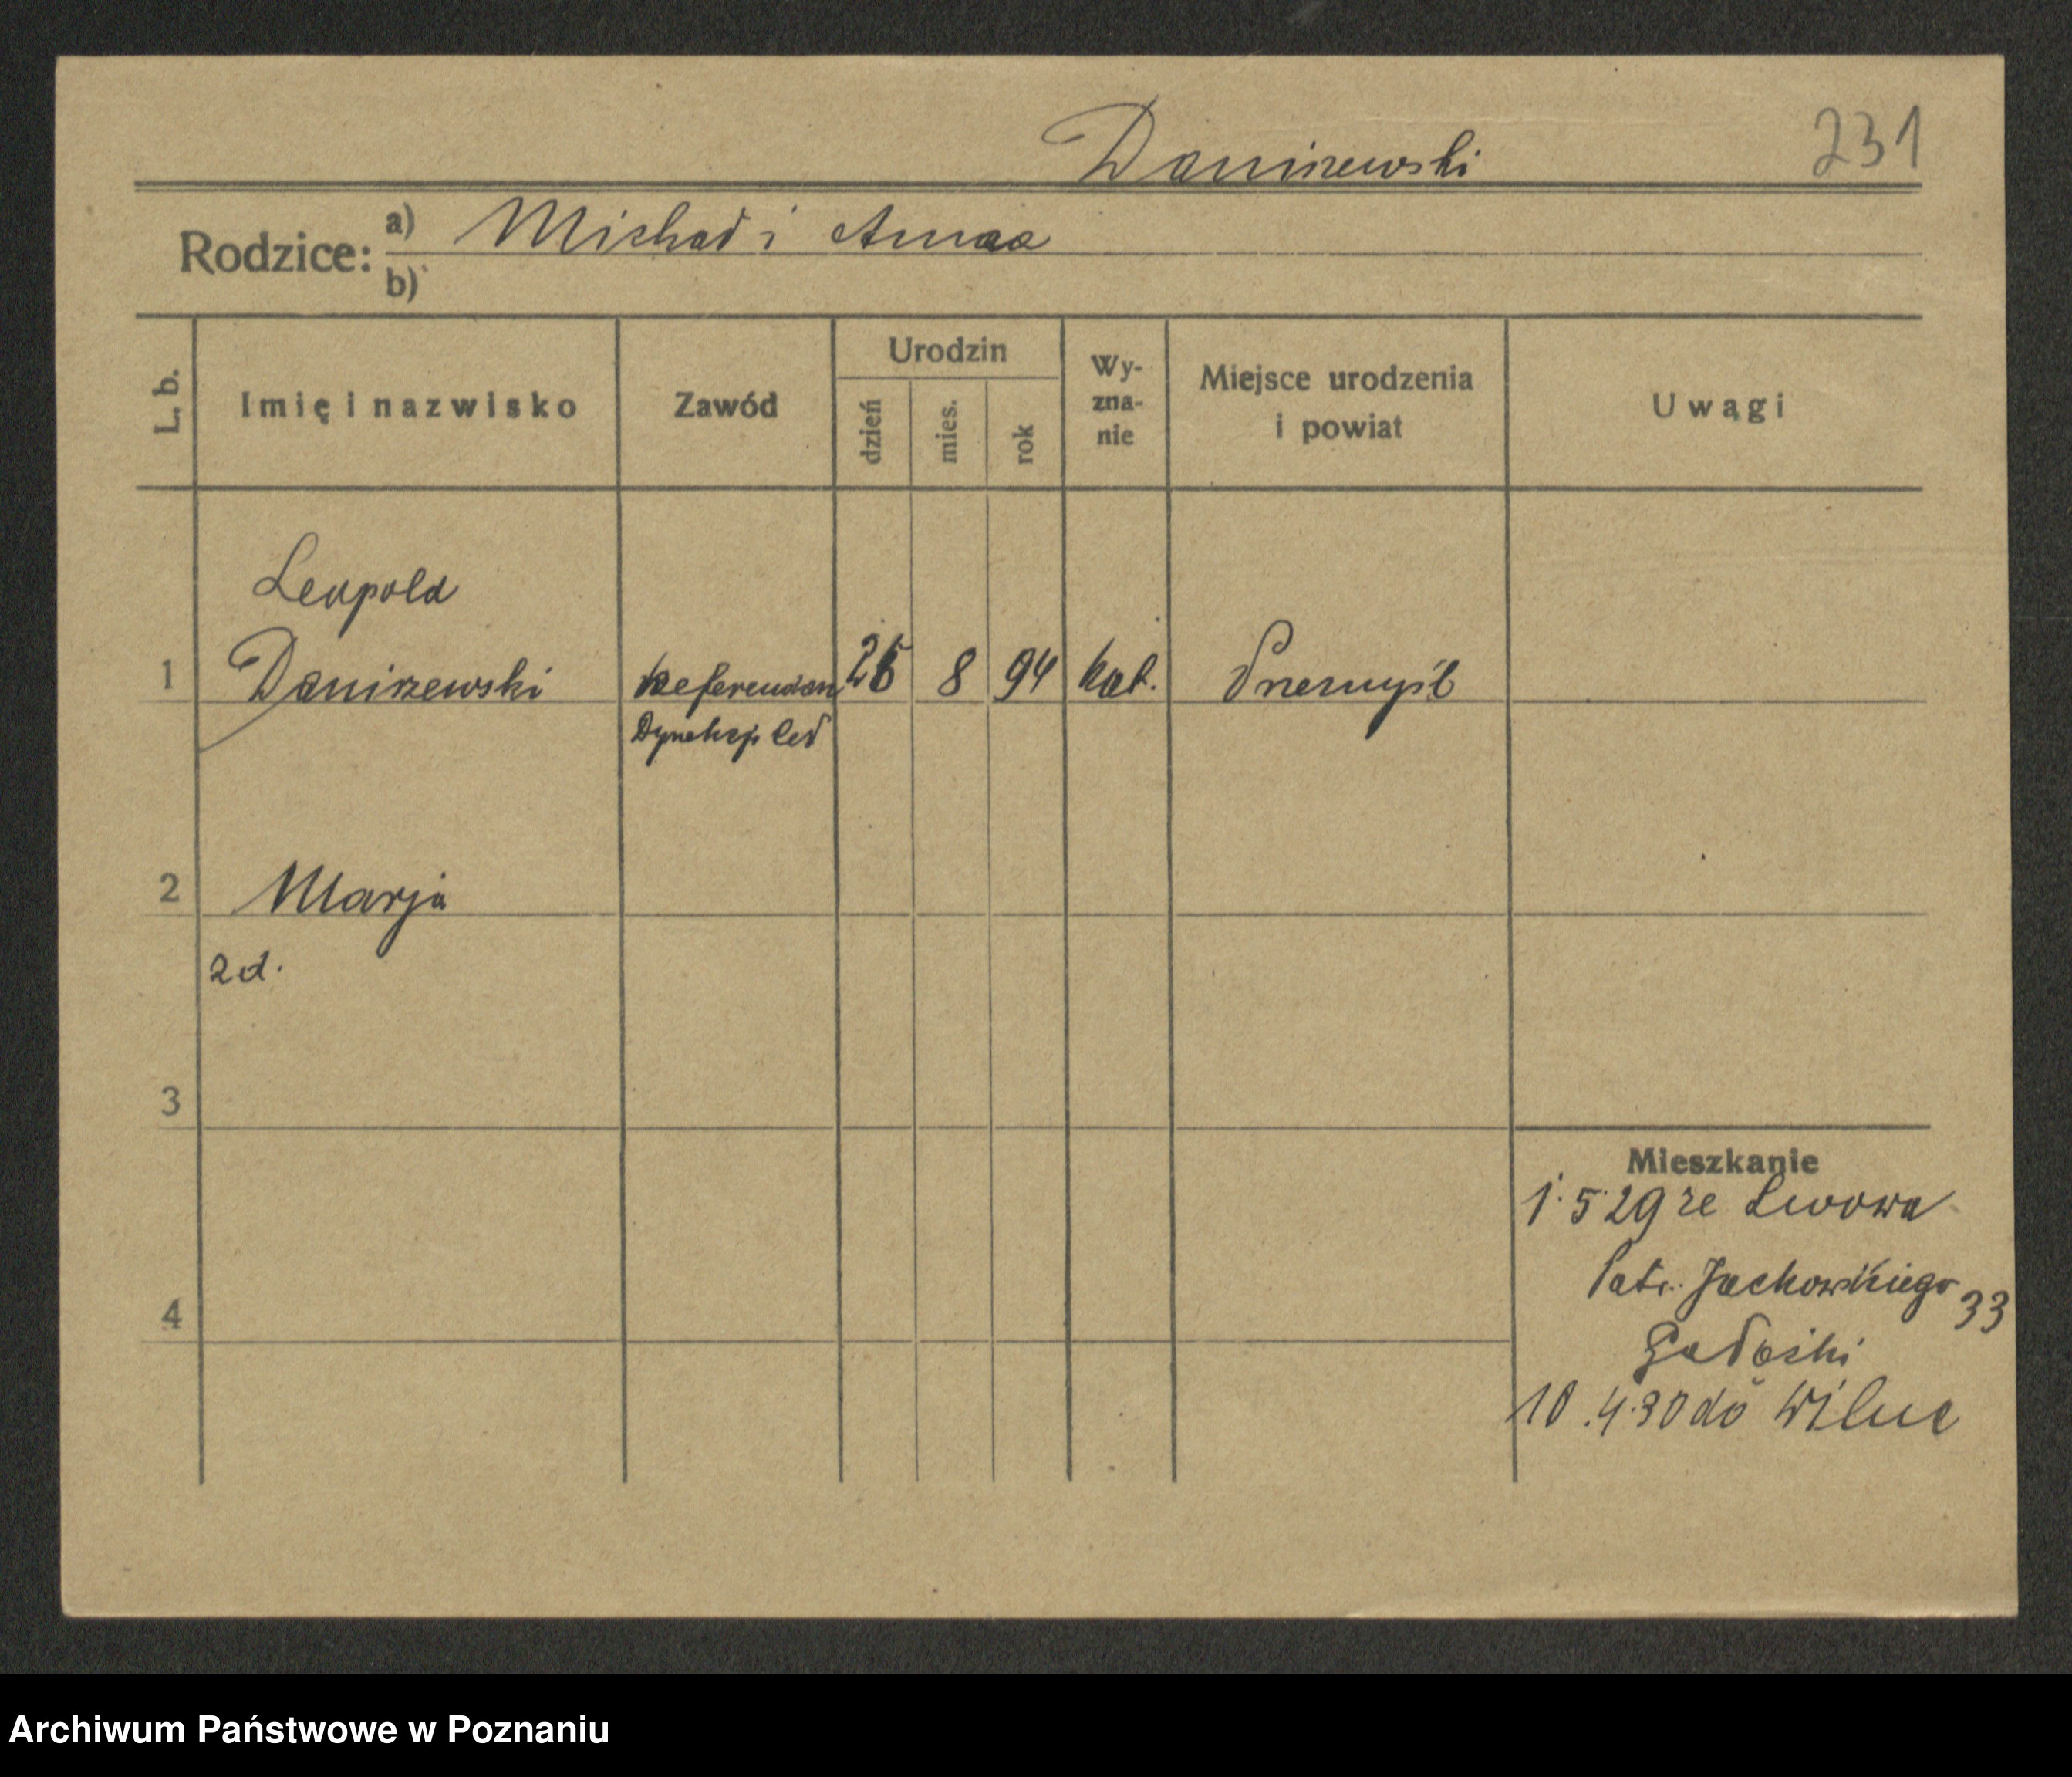 Daniszewski 231
Rodzice: a) Michał i Anna
b)
L. b. Imię i nazwisko Zawód Urodzin dzień mies. rok Wy-zna-nie Miejsce urodzenia i powiat Uwagi
Leopold
1 Daniszewski Referendarz 8 94 kat. Przemyśl
Dyrekcji Ceł
2 Marja
2 d.
3
Mieszkanie
1.5 29 ze Lwowa
Patr. Jackowskiego 33
4
10.4.30 do Wilna
Archiwum Państwowe w Poznaniu